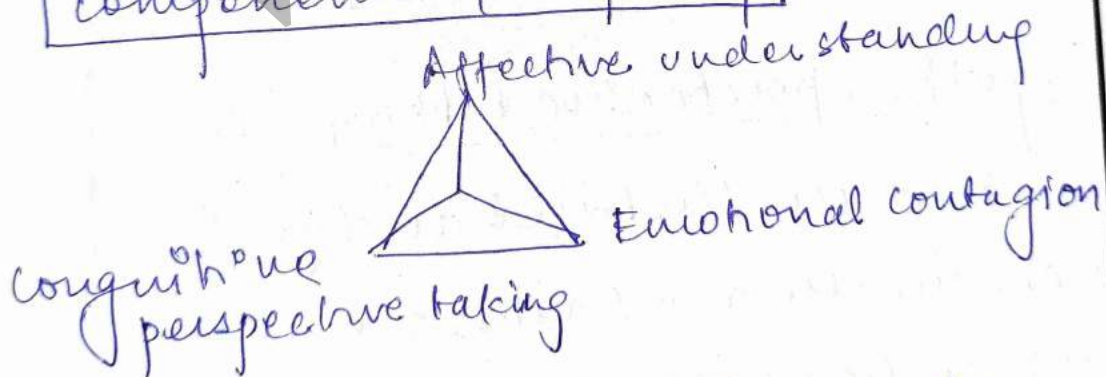 component
Affective understanding
Emotional contagion
congnitive
perspective taking